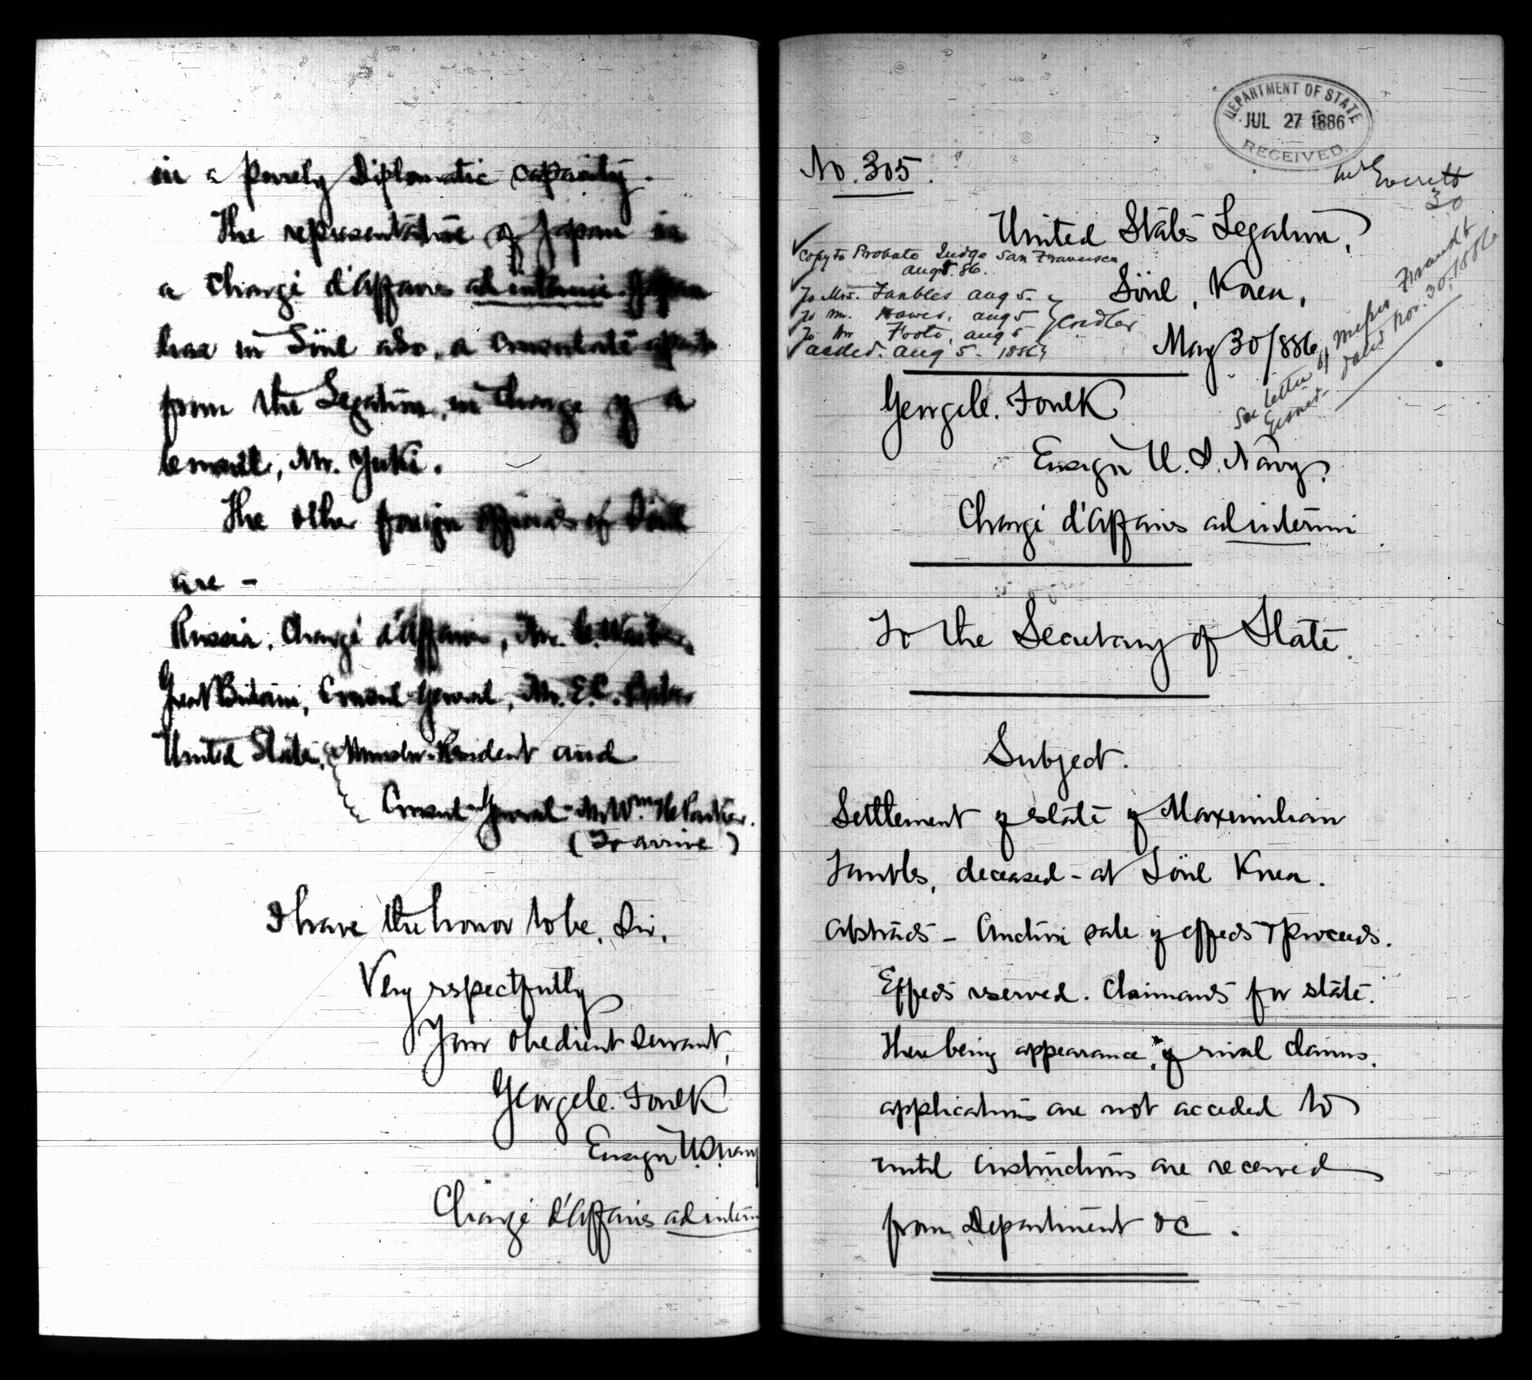 in a purely Diplomatic capacity.
The representative of Japan is
a Chargé d'Affaires ad interim. Japan
has in Söul also, a Consulate apart
from the Legation, in charge of a
Consul, Mr. Yuki.
The other foreign officials of Söul
are -
Russia, Chargé d'Affaires, Mr. C. Waeber,
Great Britain, Consul General, Mr. E.C. Baber
United States, Minister Resident and
Consul-General - Mr Wm. H. Parker.
(To arrive)
I have the honor to be, Sir,
Very respectfully
Your obedient servant,
George C. Foulk
Ensign U.S. Navy
Chargé d'Affaires ad interim
DEPARTMENT OF STATE
JUL 27 1886
RECEIVED.
No. 305.
Mr Everett
30
United States Legation,
Copy to Probate Judge San Francisco
Aug 5. 86.
Söul, Korea,
To Mrs. Taubles Aug 5.
To Mr. Hawes, Aug 5
To Mr Foote, Aug 5
acked. Aug 5. 1886
May 30/886
See letter of Messrs
dated Nov. 30, 1886
George C. Foulk
Ensign U.S. Navy,
Chargé d'Affaires ad interim
To the Secretary of State.
Subject.
Settlement of estate of Maximilian
Taubles, deceased - at Söul Korea.
Abstracts - Auction sale of effects & proceeds.
Effects reserved. Claimants for estate.
There being appearance of rival claims,
applications are not acceded to
until instructions are received
from Department &c.